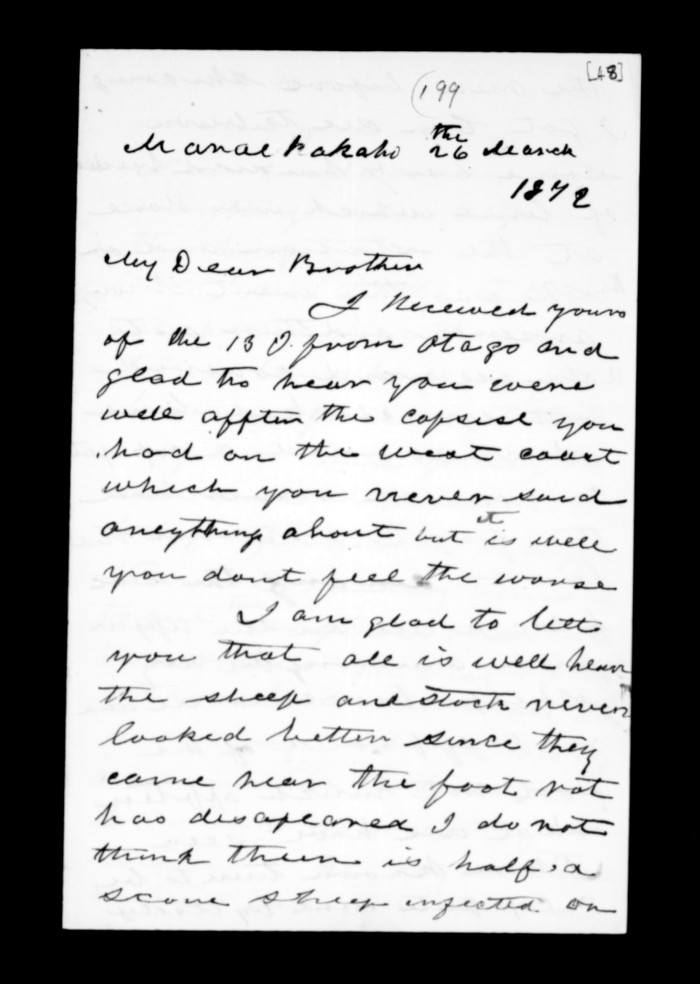 [48]
(199
Maraekakaho 26 the March
1872
My Dear Brother
I Received yours
of the 13 from Otago and
glad to hear you were
well affter the capsise you
had on the west coast
which you never said
aneything about but it is well
you dont feel the worse
I am glad to lett
you that all is well hear
the sheep and stock never
looked better since they
came hear the foot rot
has disapeared I do not
think there is half a
score sheep infected on